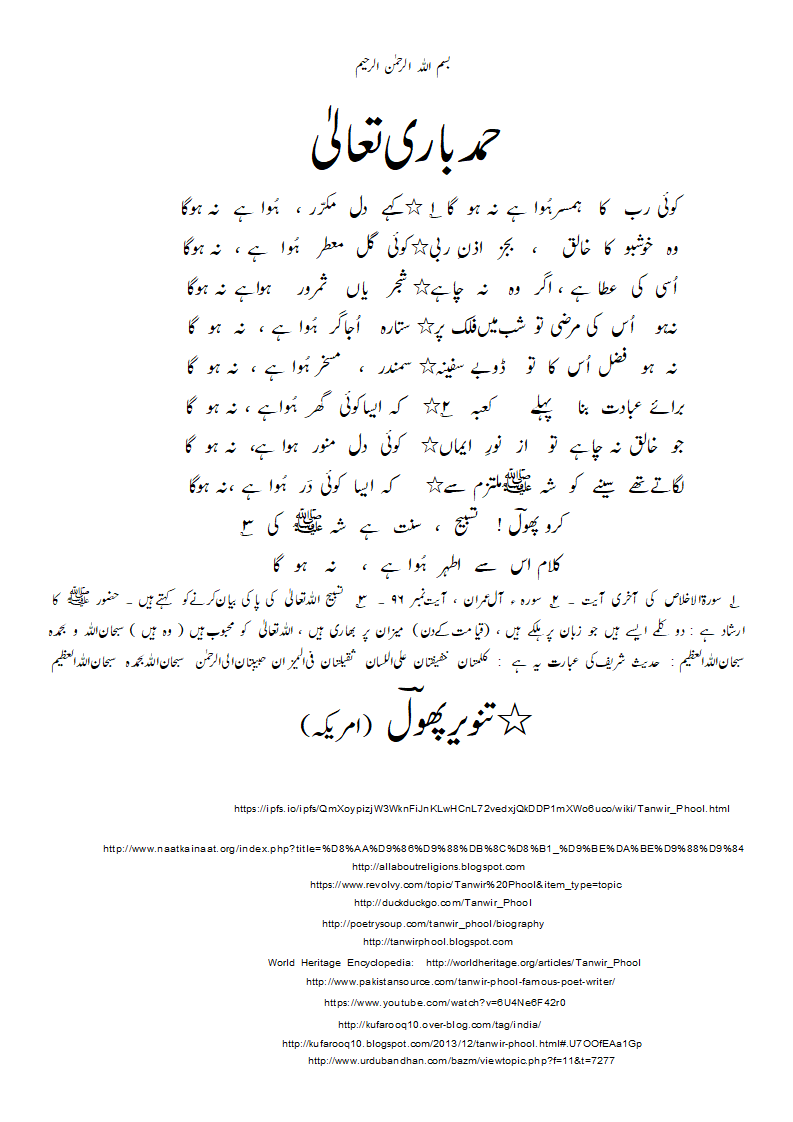 بسم اللہ الرحمٰن الرحیم
حمد باری تعالیٰ
کوئی رب کا ہمسر ہُوا ہے نہ ہو گا ۱؎ ☆ کہے دل مکرّر ، ہُوا ہے نہ ہوگا
وہ خوشبو کا خالق ، بجز اذنِ ربی ☆ کوئی گل معطر ہُوا ہے ، نہ ہوگا
اُسی کی عطا ہے ، اگر وہ نہ چاہے ☆ شجر یاں ثمرور ہواہے نہ ہوگا
نہ ہو اُس کی مرضی تو شب میں فلک پر ☆ ستارہ اُجاگر ہُوا ہے ، نہ ہو گا
نہ ہو فضل اُس کا تو ڈوبے سفینہ ☆ سمندر ، مسخر ہُوا ہے ، نہ ہو گا
برائے عبادت بنا پہلے کعبہ ۲؎ ☆ کہ ایسا کوئی گھر ہُواہے ، نہ ہو گا
جو خالق نہ چاہے تو از نورِ ایماں ☆ کوئی دل منور ہوا ہے، نہ ہو گا
لگاتے تھے سینے کو شہ ﷺ ملتزم سے ☆ کہ ایسا کوئی دَر ہُوا ہے ،نہ ہوگا
کرو پھولؔ ! تسبیح ، سنت ہے شہ ﷺ کی ۳؎
کلام اس سے اطہر ہُوا ہے ، نہ ہو گا
۱؎ سورۃ الاخلاص کی آخری آیت ۔ ۲؎ سورہ ء آل عمران ، آیت نمبر ۹۶ ۔ ۳؎ تسبیح اللہ تعالیٰ کی پاکی بیان کرنے کو کہتے ہیں ۔ حضور ﷺ کا
ارشاد ہے : دو کلمے ایسے ہیں جو زبان پر ہلکے ہیں ، (قیامت کے دن) میزان پر بھاری ہیں ، اللہ تعالیٰ کو محبوب ہیں ( وہ ہیں ) سبحان اللہ و بحمدہ
سبحان اللہ العظیم : حدیث شریف کی عبارت یہ ہے : کلمتان خفیفتان علی اللسان ثقیلتان فی المیزان حبیبتان الی الرحمٰن سبحان اللہ بحمدہ سبحان اللہ العظیم
☆ تنویر پھولؔ (امریکہ)
https://ipfs.io/ipfs/QmXoypizjW3WknFiJnKLwHCnL72vedxjQkDDP1mXWo6uco/wiki/Tanwir_Phool.html
http://www.naatkainaat.org/index.php?title=%D8%AA%D9%86%D9%88%DB%8C%D8%B1_%D9%BE%DA%BE%D9%88%D9%84
http://allaboutreligions.blogspot.com
https://www.revolvy.com/topic/Tanwir%20Phool&item_type=topic
http://duckduckgo.com/Tanwir_Phool
http://poetrysoup.com/tanwir_phool/biography
http://tanwirphool.blogspot.com
World Heritage Encyclopedia: http://worldheritage.org/articles/Tanwir_Phool
http://www.pakistansource.com/tanwir-phool-famous-poet-writer/
https://www.youtube.com/watch?v=6U4Ne6F42r0
http://kufarooq10.over-blog.com/tag/india/
http://kufarooq10.blogspot.com/2013/12/tanwir-phool.html#.U7OOfEAa1Gp
http://www.urdubandhan.com/bazm/viewtopic.php?f=11&t=7277